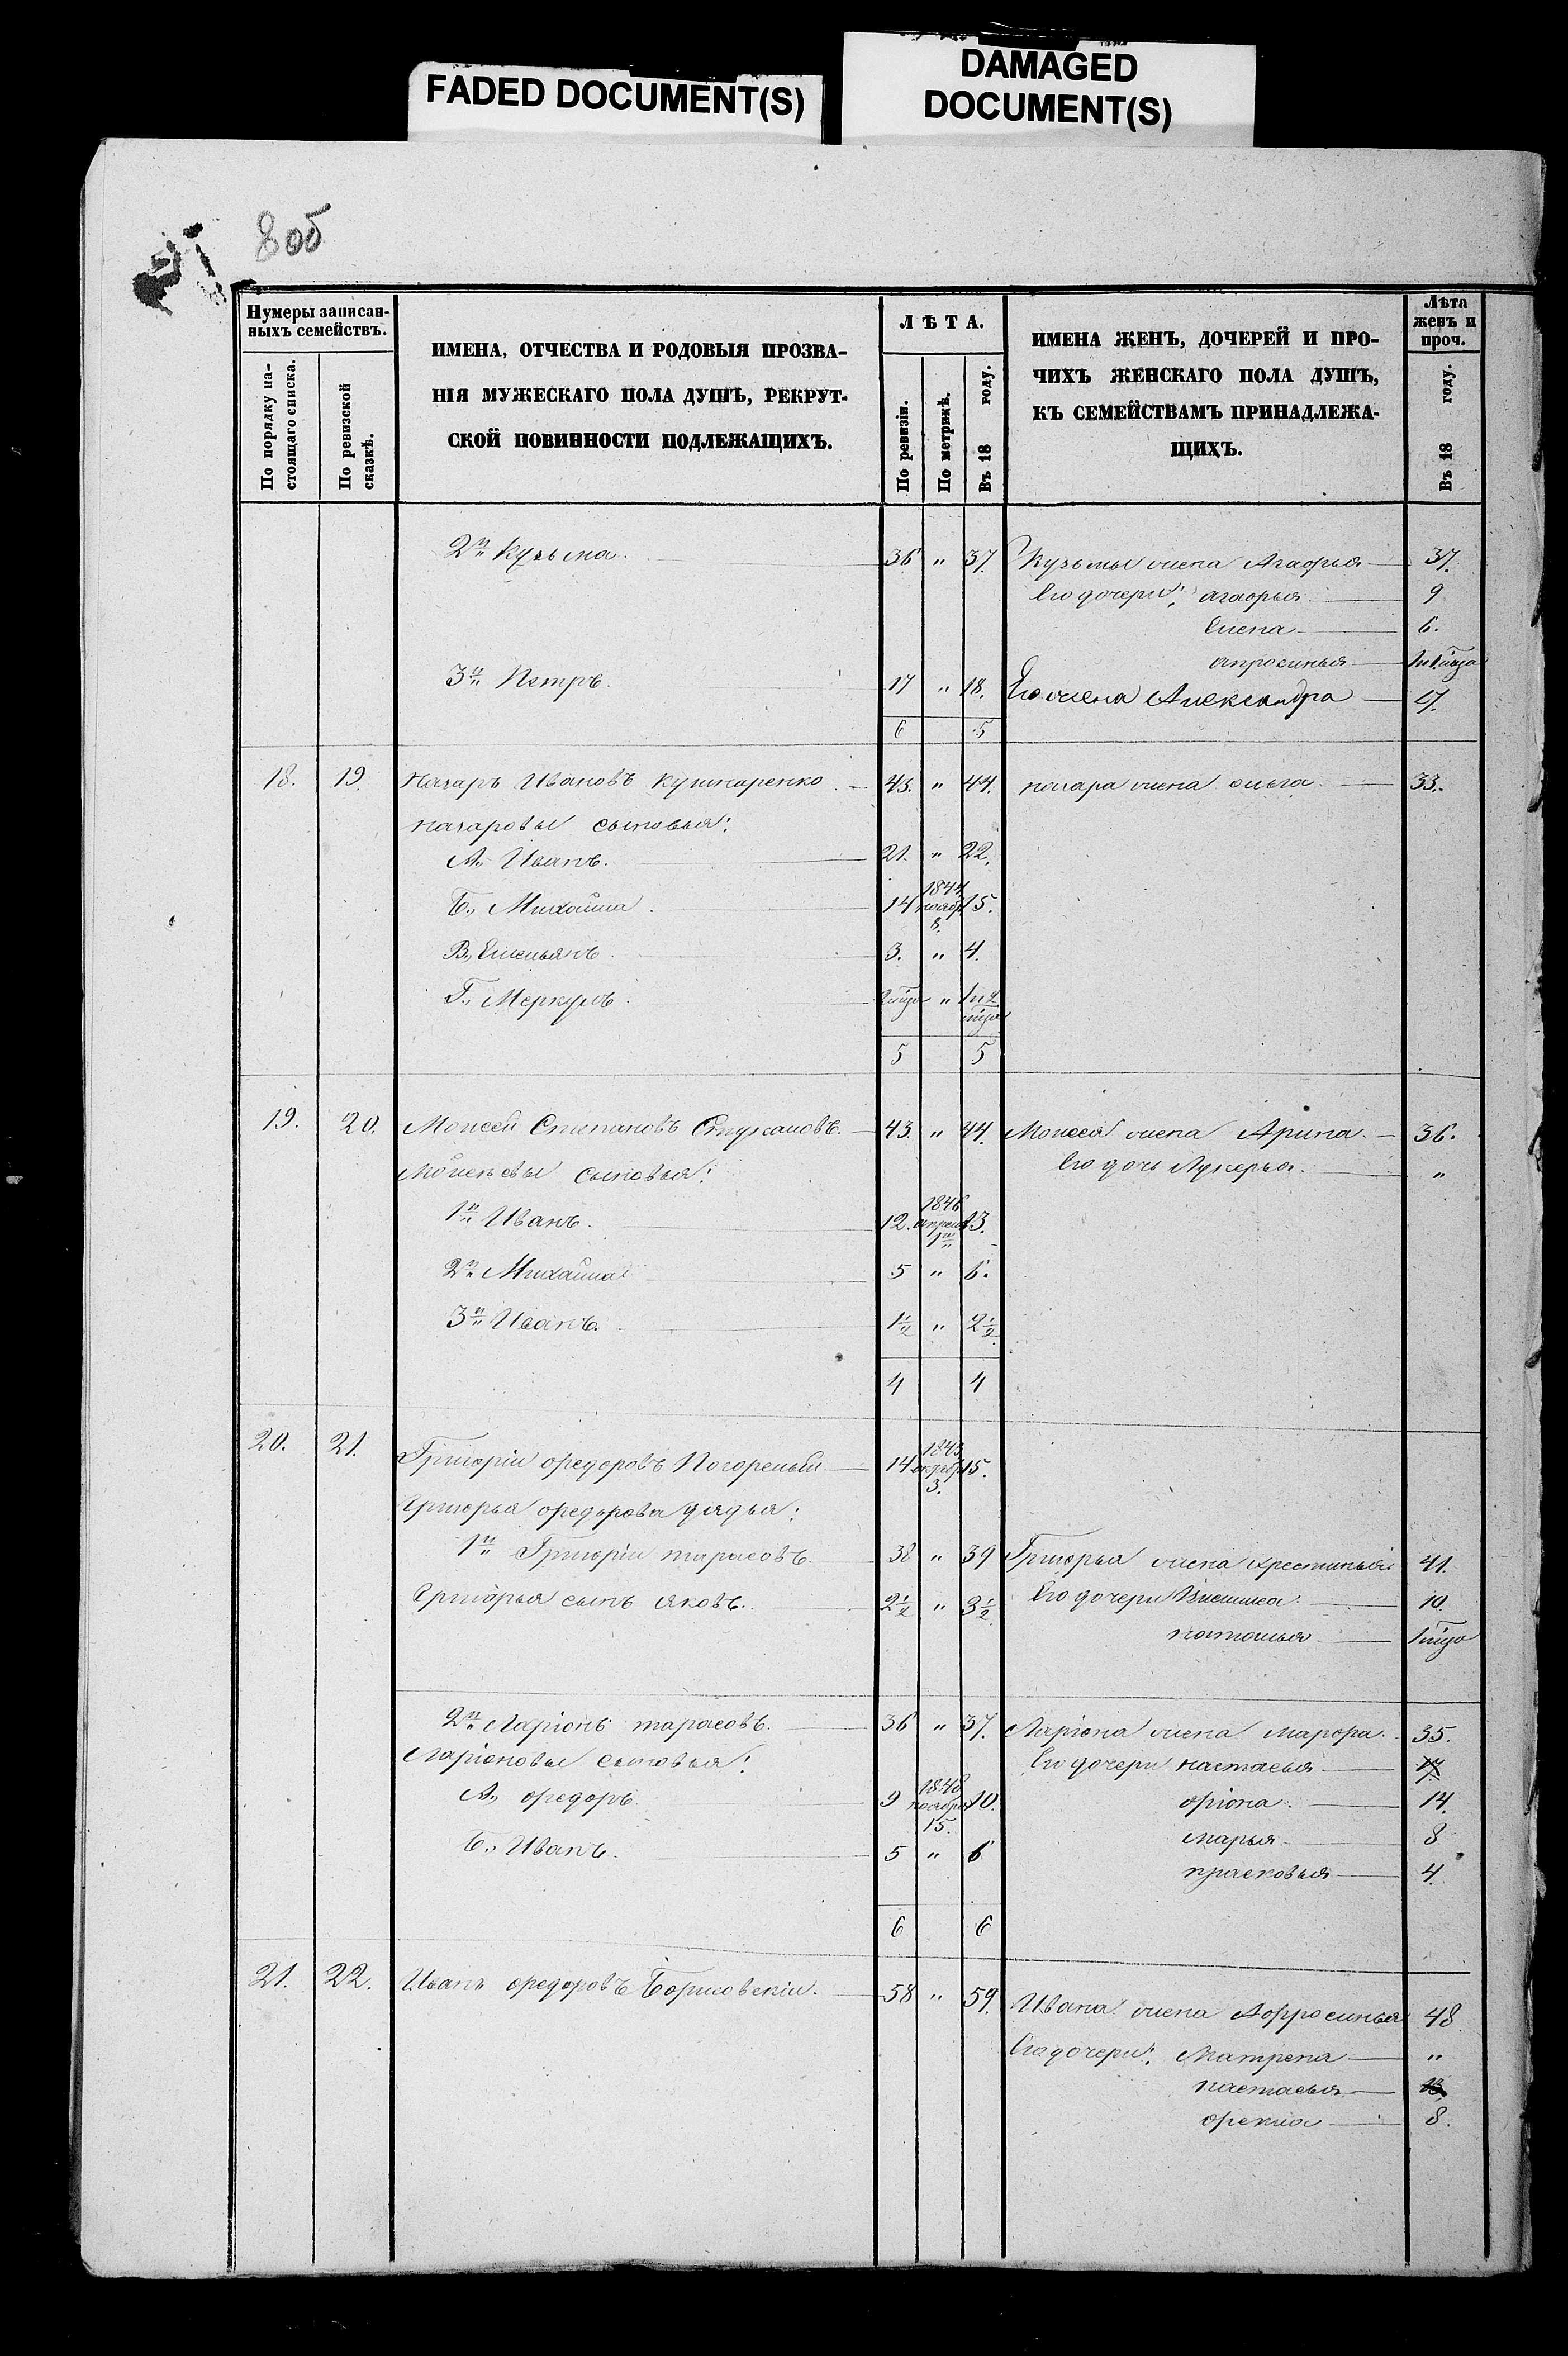 FADED DOCUMENT(S)
DAMAGED
DOCUMENT(S)
8об
Нумеры записан-
ныхъ семействъ.
По порядку на-
стоящаго списка.
По ревизской
сказкѣ.
ИМЕНА, ОТЧЕСТВА И РОДОВЫЯ ПРОЗВА-
НІЯ МУЖЕСКАГО ПОЛА ДУШЪ, РЕКРУТ-
СКОЙ ПОВИННОСТИ ПОДЛЕЖАЩИХЪ.
ЛѢТА.
По ревизіи.
По метрикѣ.
Въ 18 году.
ИМЕНА ЖЕНЪ, ДОЧЕРЕЙ И ПРО-
ЧИХЪ ЖЕНСКАГО ПОЛА ДУШЪ,
КЪ СЕМЕЙСТВАМЪ ПРИНАДЛЕЖА-
ЩИХЪ.
Лѣта
женъ и
проч.
Въ 18 году.
2й Кузьма. 36 " 37. Кузьмы жена Агафья 37.
Его дочери: агафья 9
Елена 6.
апросинья
3й Петръ. 17 " 18. Его жена Александра 17.
6 5
18. 19. Назаръ Ивановъ Кушнаренко 43. " 44. назара жена ольга. 33.
назаровы сыновья:
А., Иванъ. 21. " 22.
Б., Михайла. 14 1844 ноябр. 8. 15.
В., Емельянъ 3. " 4.
Г., Меркулъ. "
5 5
19. 20. Моисей Степановъ 43. " 44. Моисея жена Арина. 36.
Моисеевы сыновья: Его дочь Лукерья. "
1й Иванъ. 12. 1846 апреля 1го 13.
2й Михайла 5 " 6.
3й Иванъ. 1½ " 2½
4 4
20. 21. Григорій федоровъ Погорелый 14 1843 октябр. 3. 15.
Григорья федорова дядья:
1й Григорій тарасовъ. 38 " 39 Григорья жена хрестинья 41.
Григорья сынъ яковъ. 2½ " 3½ Его дочери 10.
наталья
2й Ларіонъ тарасовъ. 36 " 37. Ларіона жена марфа. 35.
Ларіоновы сыновья: Его дочери настасья
А., федоръ 9 1848 ноября 15. 10. оріона. 14.
Б., Иванъ. 5 " 6 марья 8
прасковья 4.
6 6
21. 22. Иванъ федоровъ Борисовскій. 58 " 59. Ивана жена Аффросинья 48
Его дочери: Матрена "
настасья
фекла 8.